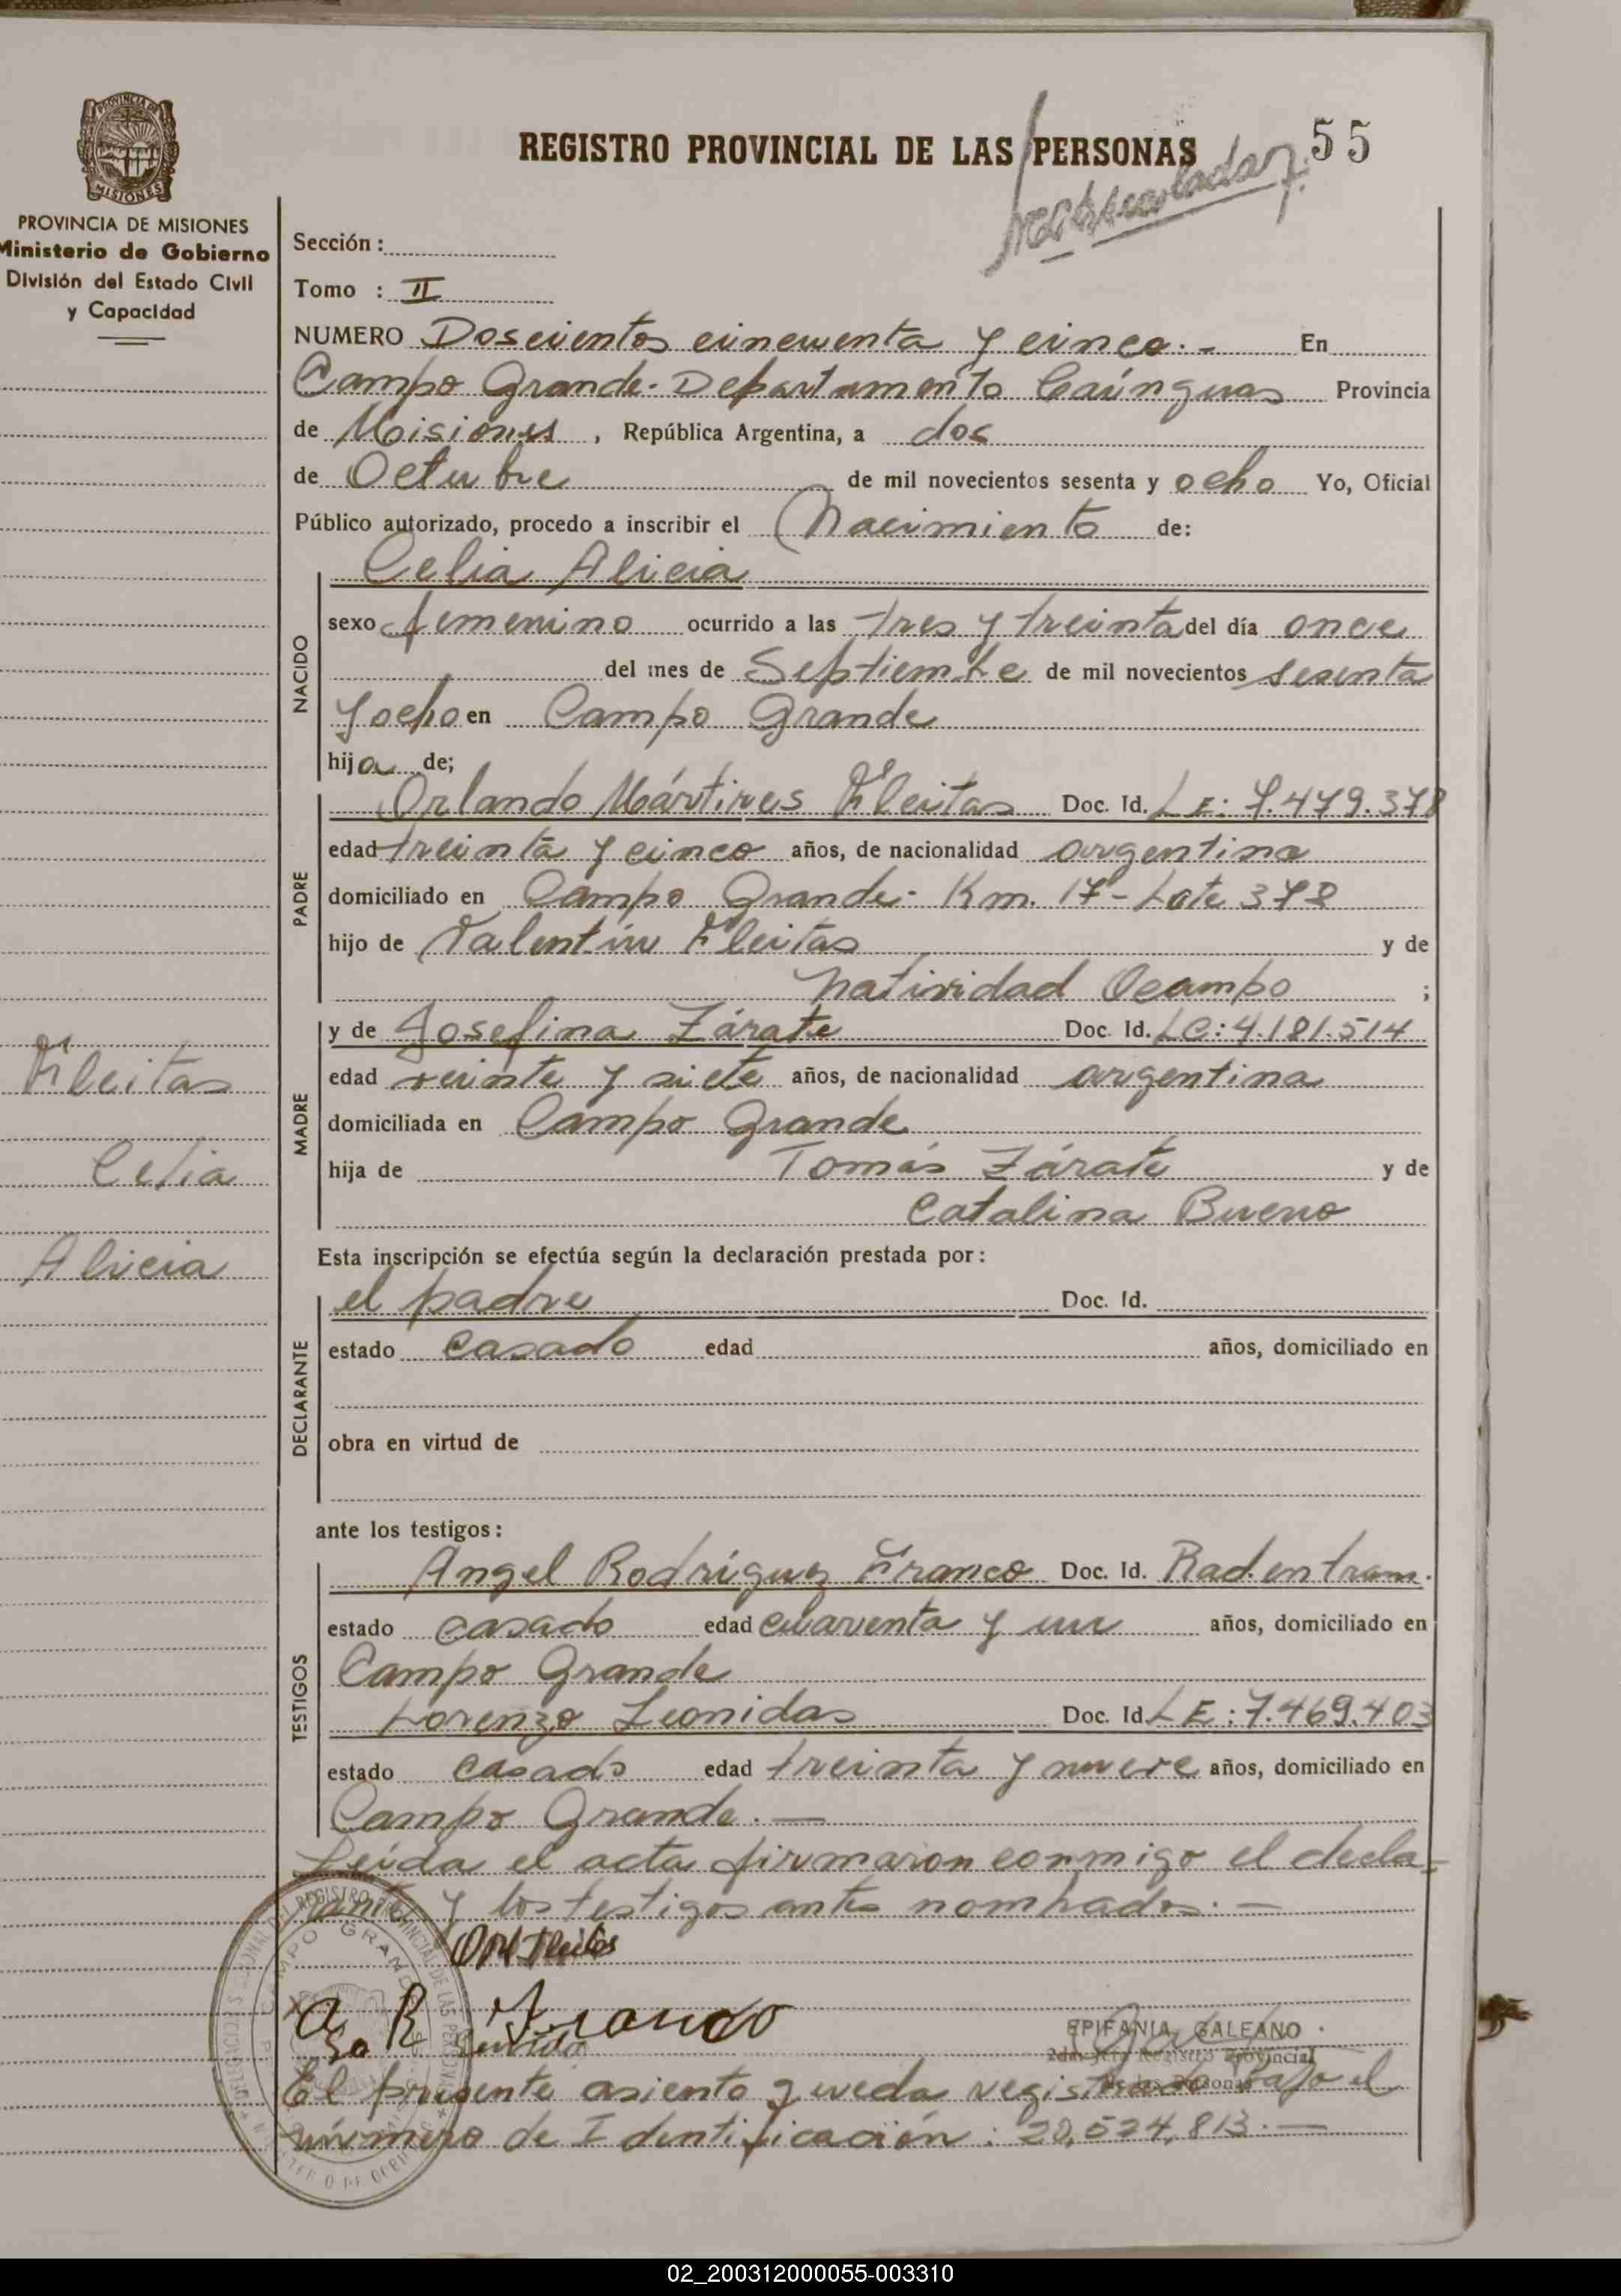 REGISTRO PROVINCIAL DE LAS PERSONAS
55
PROVINCIA DE MISIONES
Ministerio de Gobierno
División del Estado Civil
y Capacidad
Sección :
Tomo : II
NUMERO Doscientos cincuenta y cinco.- En
Campo Grande- Departamento Cainguas Provincia
de Misiones , República Argentina, a dos
de Octubre de mil novecientos sesenta y ocho Yo, Oficial
Público autorizado, procedo a inscribir el Nacimiento de:
Celia Alicia
NACIDO
sexo femenino ocurrido a las tres y treinta del día once
del mes de Septiembre de mil novecientos sesenta
y ocho en Campo Grande
hija de;
PADRE
Orlando Mártires Fleitas Doc. Id. LE: 7.479.378
edad treinta y cinco años, de nacionalidad argentina
domiciliado en Campo Grande- Km. 17- Lote 378
hijo de Valentín Fleitas y de
Natividad Ocampo ;
MADRE
y de Josefina Zárate Doc. Id. LC: 4.181.514
edad veinte y siete años, de nacionalidad argentina
domiciliada en Campo Grande
hija de Tomás Zárate y de
Catalina Bueno
Fleitas
Celia
Alicia
Esta inscripción se efectúa según la declaración prestada por:
DECLARANTE
el padre Doc. Id.
estado casado edad años, domiciliado en
obra en virtud de
ante los testigos:
TESTIGOS
Angel Rodríguez Franco Doc. Id. Rad. en tram.
estado casado edad cuarenta y un años, domiciliado en
Campo Grande
Lorenzo Leonidas Doc. Id LE: 7.469.403
estado casado edad treinta y nueve años, domiciliado en
Campo Grande.—
Leída el acta firmaron conmigo el decla-
rante y los testigos antes nombrados.—
A R Franco
EPIFANIA GALEANO
Registro Provincial
El presente asiento queda registrado bajo el
número de Identificación: 20,524,813.—
CAMPO GRANDE
02_200312000055-003310